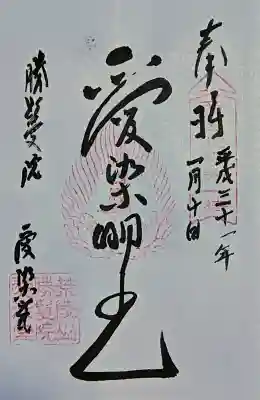 奉拝
平成三十一年
一月十日
愛染明王
勝鬘院
愛染堂